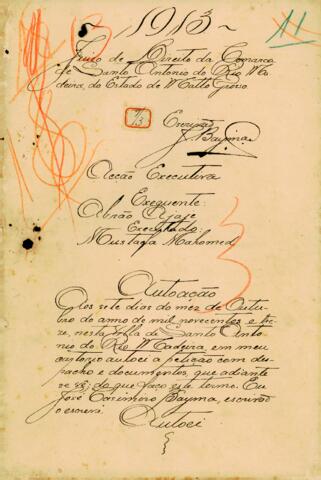 1913
11
Juizo de Direito da Comarca
de Santo Antonio do Rio Ma
deira, do Estado de Matto Grosso
7/3
Escrivão
J. Bayma
Acção Executiva
Exequente:
Abrão
Executado:
Mustafa Mahomed
Autoação
Aos sete dias do mez de Outu
bro do anno de mil novecentos e tre
ze, nesta Villa de Santo Anto
nio do Rio Madeira, em meu
cartorio autoei a petição com des
pacho e documentos, que adiante
se vê; do que faço este termo. Eu
José Casimiro Bayma, escrivão
o escrevi.
Autoei